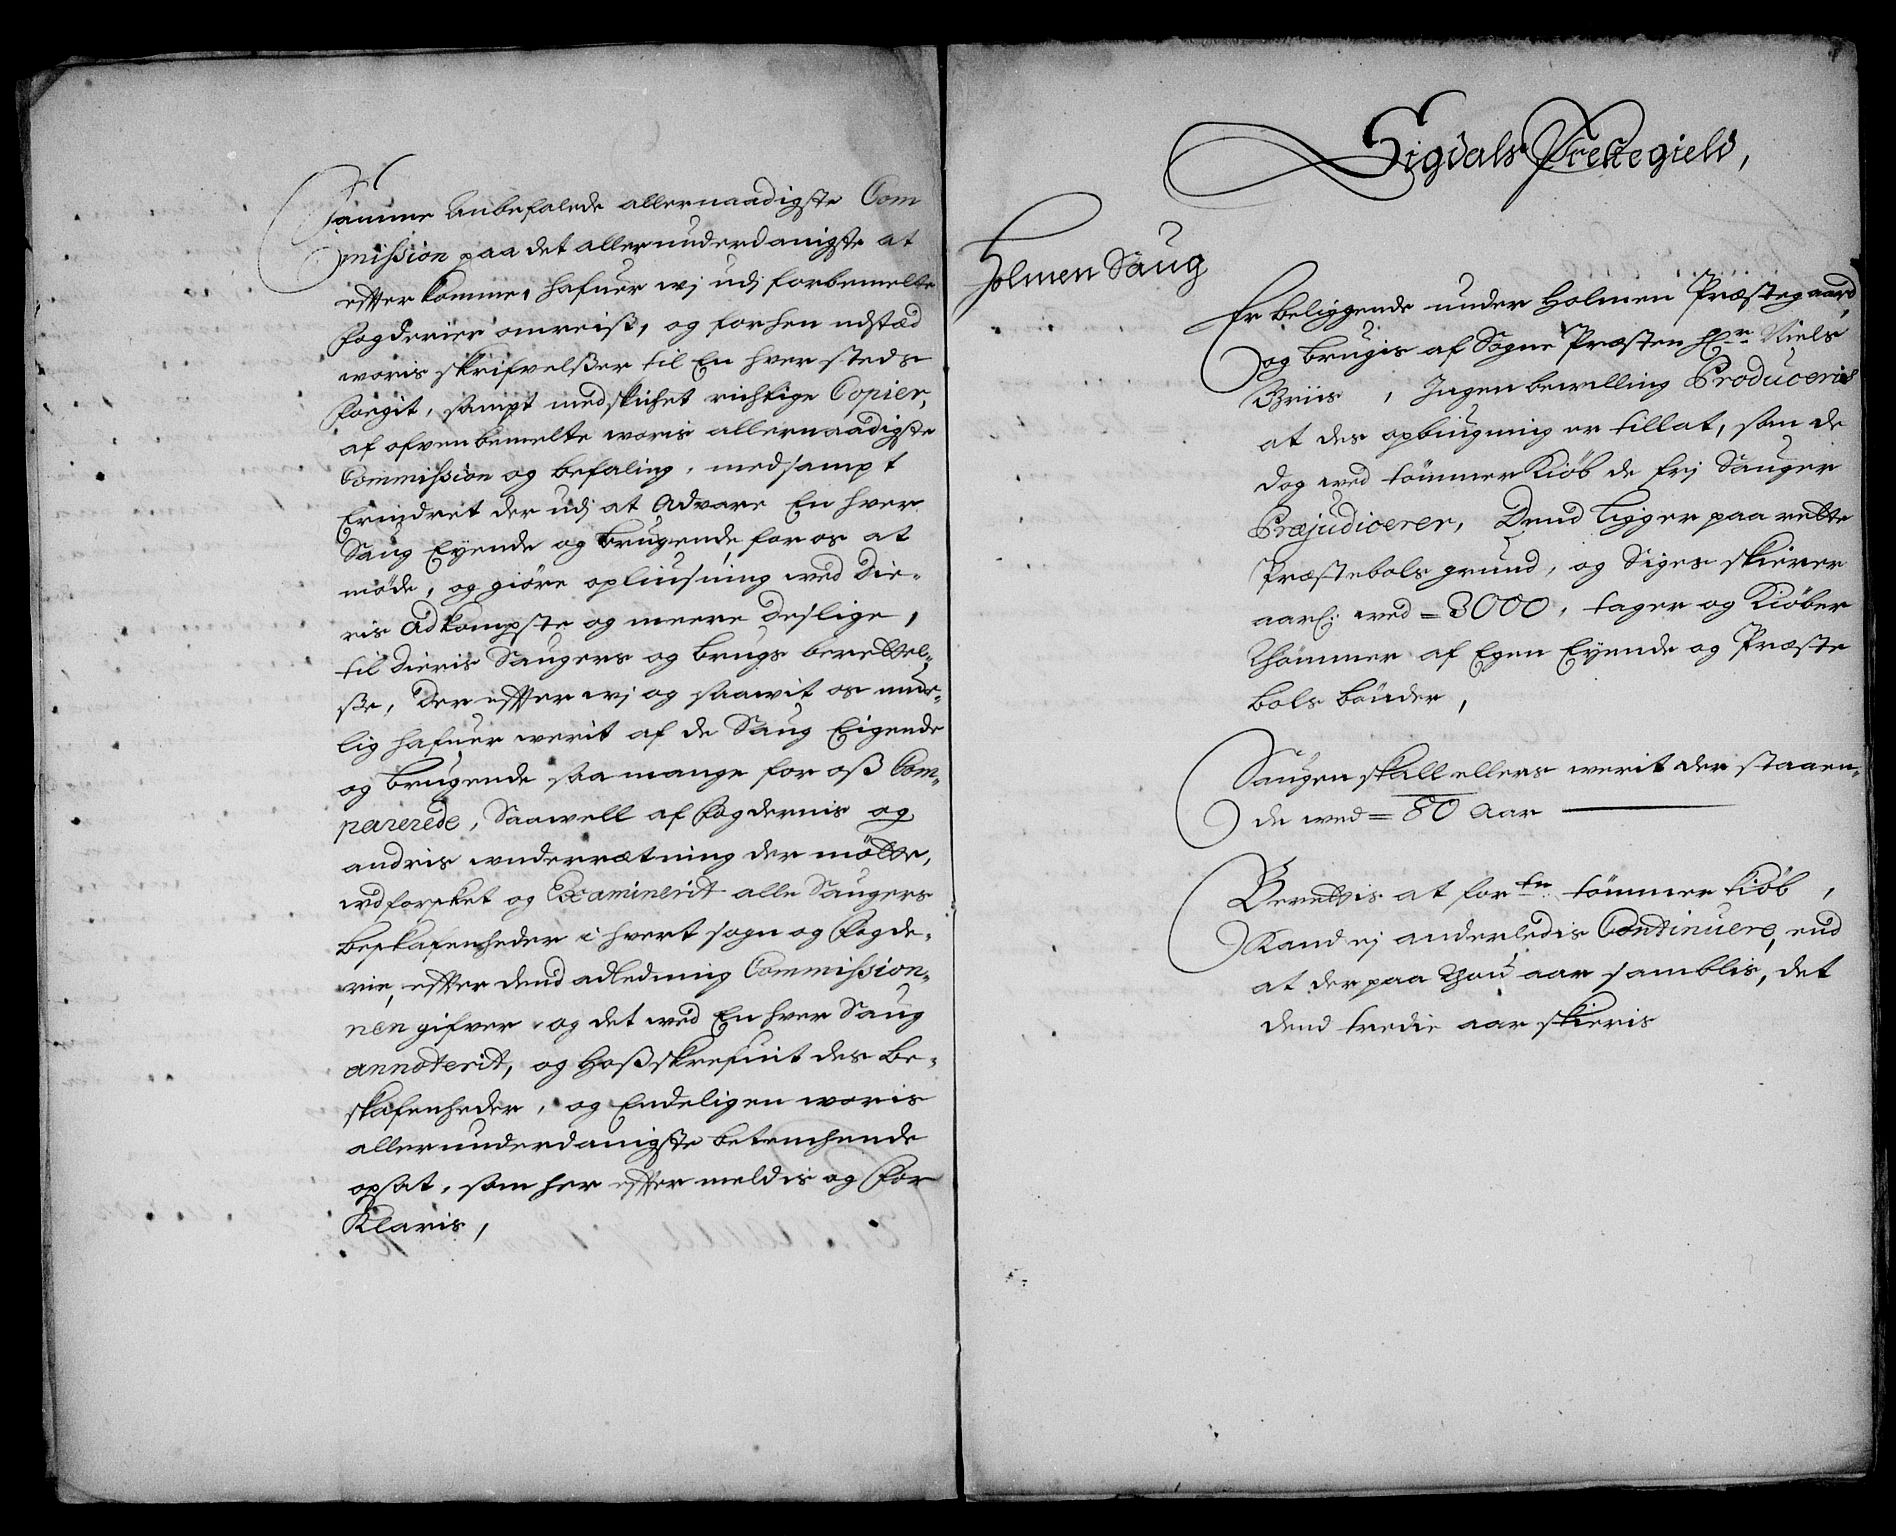 Samme Anbefalede allernaadigste Com
mission paa det allerunderdanigste at
effterkomme, hafuer wj udj forbemelte
fogderier omreist, og forhen udstæd
woris skrifvelßer til En hver steds
foegit, sampt medskichet richtige Copier,
af ofvenbemelte woris allernaadigste
Commission og befaling, medsampt
Erindret der udj at Advare En hver
Saug Eyende og brugende for os at
möde, og giöre opliusning wed Die-
ris Adkompste og meere deslige,
til dieris Saugers og brugs berettel-
ße, der effter wj og saawit os muͤe-
lig hafuer werit af de Saug Eigende
og brugende saa mange for oß Com-
parerede, Saawell af fogdernis og
andris underrætning der mötte,
udforsket og Examinerit alle Saugers
beskafenheder i hvert sogn og fogde-
rie, effter dend adledning Commission-
nen gifver, og det wed En hver Saug
annoterit, og hoßskrefuit des be-
skafenheder, og Endeligen woris
allerunderdanigste betenchende
opsat, som her effter meldis og for
Klaris,
Sigdals Prestegield,
Holmen Saug
Er beliggende under Holmen Præstegaard,
og brugis af Sogne Præsten Hr Niels
Briis, Ingen bewilling Produceris
at des opbiugning er tillat, som de
dog wed tömmer Kiöb de frj Sauger
Præjudicerer, Dend ligger paa rette
Præstebols grund, og Siges skierer
aarl: wed = 3000, tager og Kiöber
Thömmer af Egen Eyende og Præste
bols bönder,
Saugen skall ellers werit der staaen-
de wed = 80 Aar
Berettis at forne tömmer kiöb,
Kand ej anderledis Continuere, end
at der paa thou aar samblis, det
dend tredie aar skieris